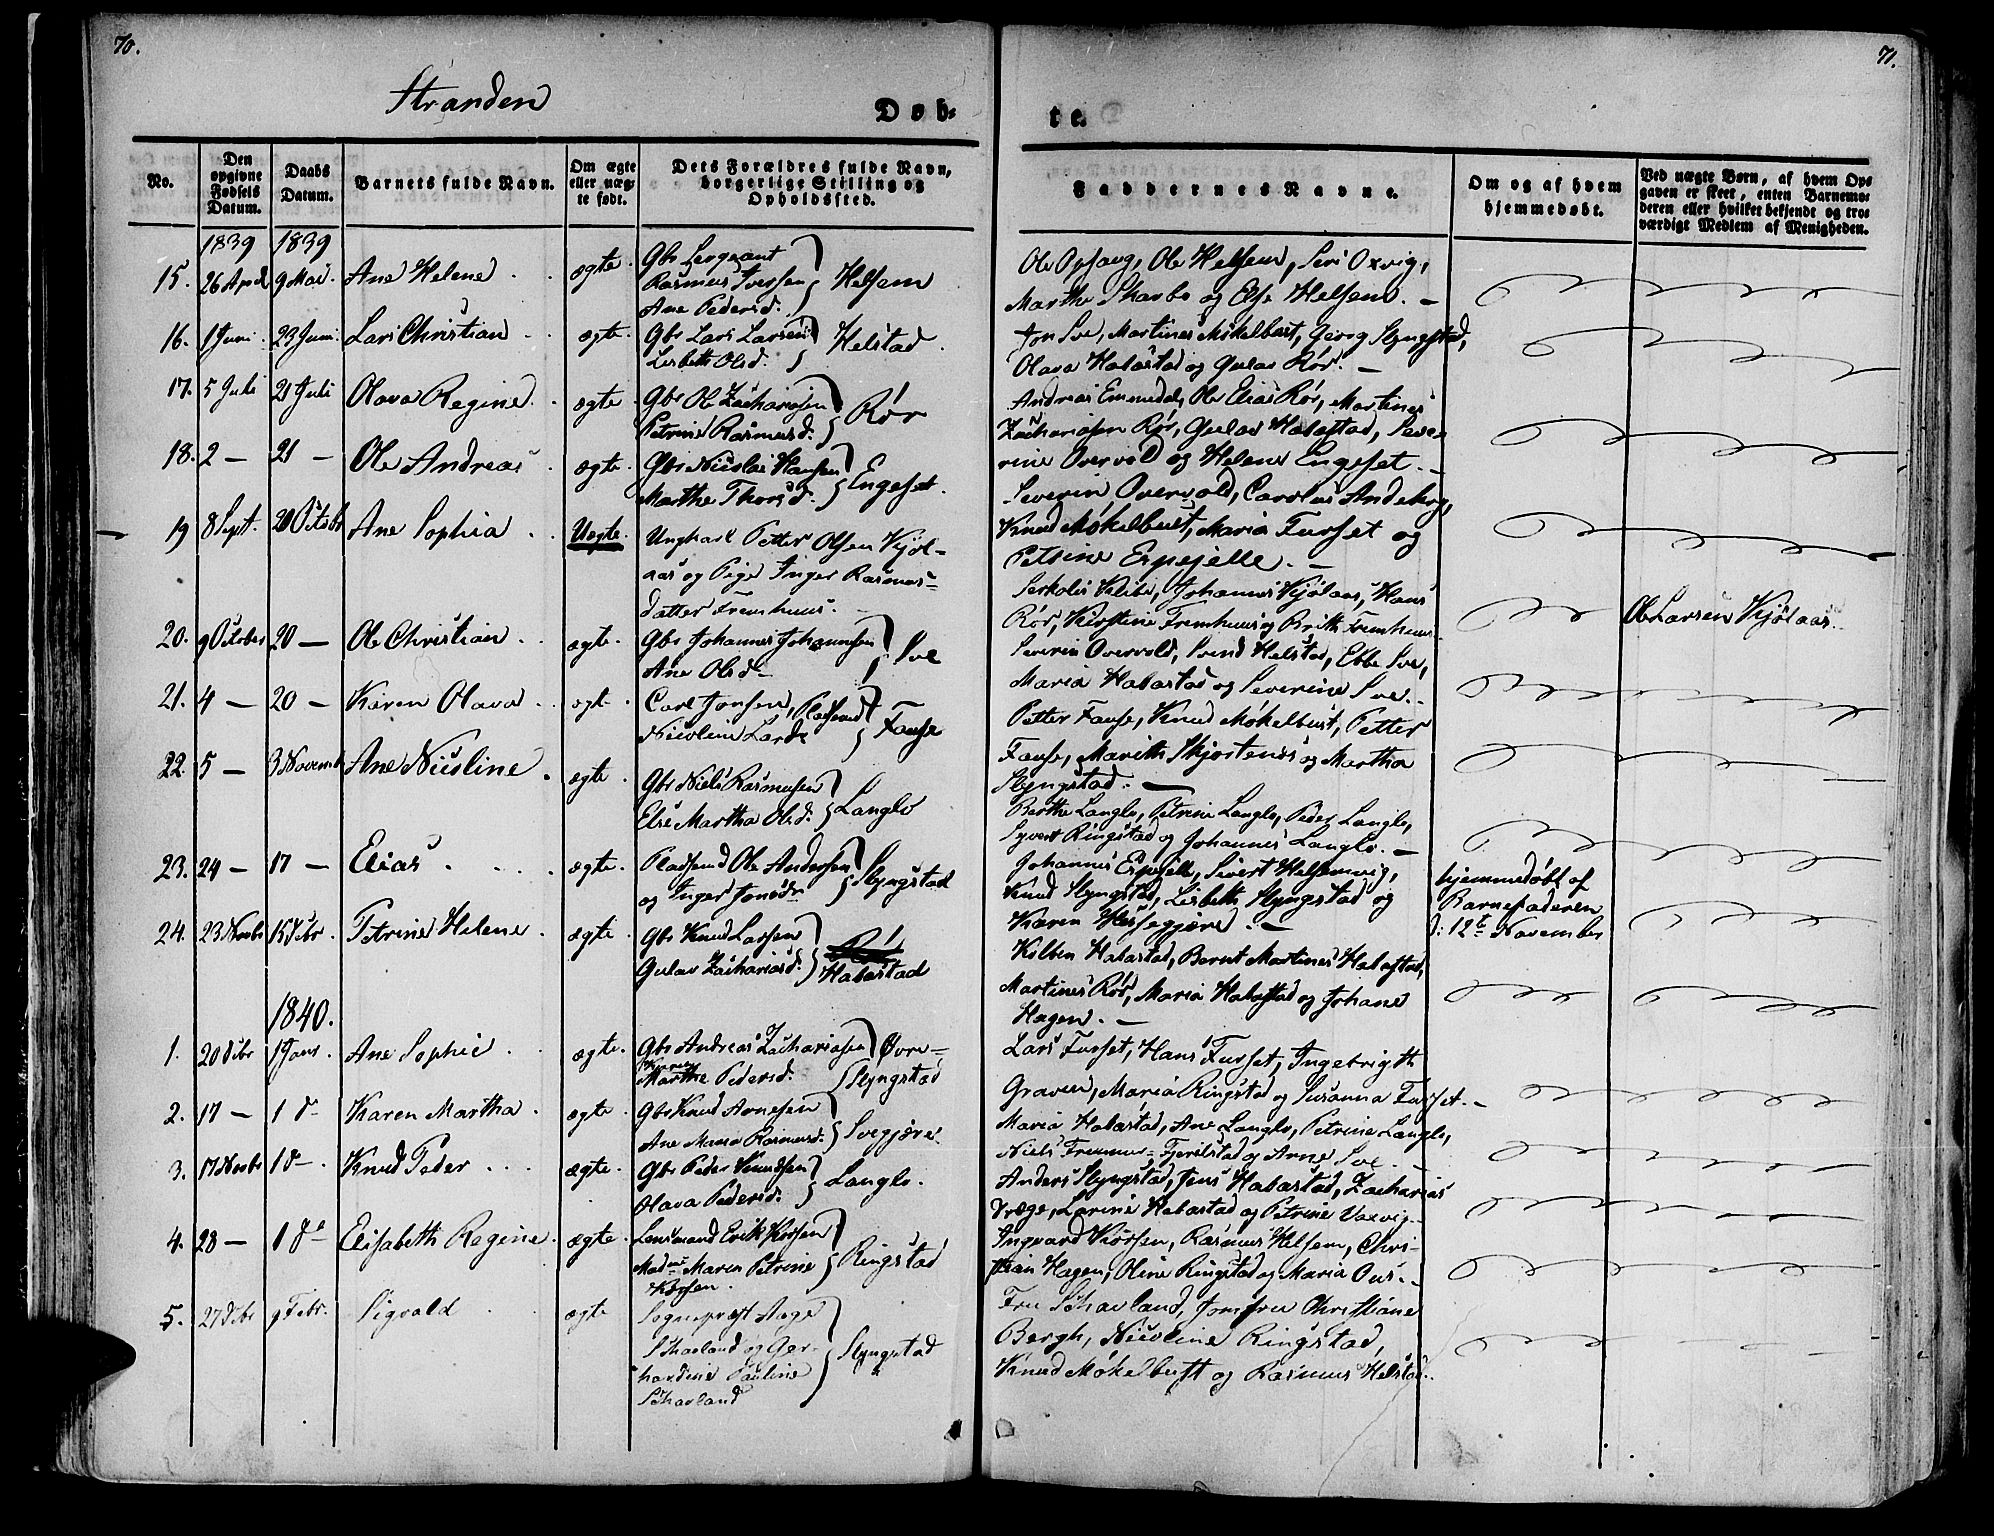 70.
71.
Stranden
Døb-
te.
No.
Den opgivne Fødsels Datum.
Daabs Datum.
Barnets fulde Navn.
Om ægte eller uæg-
te født.
Dets Forældres fulde Navn,
borgerlige Stilling og
Opholdssted.
Faddernes Navne.
Om og af hvem
hjemmedøbt.
Ved uægte Børn, af hvem Op-
gaven er skeet, enten Barnemo-
deren eller hvilket bekjendt og tro-
værdigt Medlem af Menigheden.
1839 1839
15. 26 April 9 Mai Ane Helene ægte Gbr Sergeant
Rasmus Iversen
Ane Pedersd. Helsem
Ole Opsang, Ole Helsem, Seri Oxvig,
Marthe Skarbo og Else Helsem.
16. 1 Juni 23 Juni Lars Christian ægte Gbr Lars Larsen
Lisbeth Olsd. Helstad
Jon Sve, Martines Mökelbust, Georg Slyngstad,
Olava Habostad og Gulav Rør.
17. 5 Juli 21 Juli Olava Regine ægte Gbr Ole Zachariasen
Petrine Rasmusd. Rør
Andreas Emmedal, Ole Elias Rør, Martines
Zachariasen Rør, Gulav Habostad, Seve-
rine Overvold og Helene Engeset.
18. 2 — 21 — Ole Andreas ægte Gbr Nicolai Hansen
Marthe Thorsd. Engeset.
Severin Overvold, Carolus Andeberg,
Knud Mökelbust, Maria Furset og
Petrine Erpejelle.
19 8 Sept. 20 Octobr Ane Sophia Uægte Ungkarl Petter Olsen Kjöl-
aas og Pige Inger Rasmus-
datter Fremhuus.
Johannes Kjölaas, Hans
Rör, Kirstine Fremhuus og Brith Fremhuus
Ole Larsen Kjölaas
20. 9 October 20 — Ole Christian ægte Gbr Johannes Johannesen
Ane Olsd. Sve
Severin Overvold, Svend Helstad, Ebbe Sve,
Maria Habostad og Severine Sve.
21. 4 — 20 — Karen Olava ægte Carl Jonsen, Pladsmd
Nicoline Larsd. Fause
Petter Fause, Knud Mökelbust, Petter
Fause, Marith Skjortenes og Martha
Slyngstad.
22. 5 — 3 Novemb Ane Nicoline ægte Gbr Niels Rasmusen
Else Martha Olsd. Langlo
Berthe Langlo, Petrine Langlo, Peder Langlo,
Syvert Ringstad og Johannes Langlo.
23. 24 — 17 — Elias ægte Pladsmd Ole Andersen
og Inger Jonsdr Slyngstad
Johannes Erpejelle, Sivert Helsemvig,
Knud Slyngstad, Lisbeth Slyngstad og
Karen Hessegjære.
hjemmedøbt af
Barnefaderen
d: 12te November
24. 23 Novbr 15 Dcbr. Petrine Helene ægte Gbr Knud Larsen
Gulav Zachariasd. Habostad
Kolben Habostad, Bernt Martines Habostad,
Martines Rør, Maria Habostad og Johane
Hagen.
1840.
1. 20 Dcbr 1 Janr. Ane Sophie ægte Gbr Andreas Zachariasen
Marthe Pedersd. Øvre-
Slyngstad
Lars Furset, Hans Furset, Ingebrigth
Graven, Maria Ringstad og Susanna Furset.
2. 17 — 1 d— Karen Martha ægte Gbr Knud Arnesen
Ane Maria Rasmusd. Svegjære
Maria Habostad, Ane Langlo, Petrine Langlo,
Niels Fremmer-Fjerilstad og Arne Sve.
3. 17 Novbr 1 d— Knud Peder ægte Gbr Peder Knudsen
Olava Pedersd. Langlo.
Anders Slyngstad, Jens Habostad, Zacharias
Vræge, Larine Habostad og Petrine Vaxvig.
4. 28 — 1 do Elisabeth Regine ægte Lensmand Erik Korsen
Madme Maren Petrine
Korsen. Ringstad
Ingvard Korsen, Rasmus Helsem, Chri-
stian Hagen, Oline Ringstad og Maria Ous.
5. 27 Dcbr 9 Febr. Sigvald ægte Sognepræst Aage
Schavland og Ger-
hardine Pauline
Schavland Slyngstad
Fru Schavland, Jomfru Christiane
Bergh, Nicoline Ringstad,
Knud Mökelbust og Rasmus Helstad.